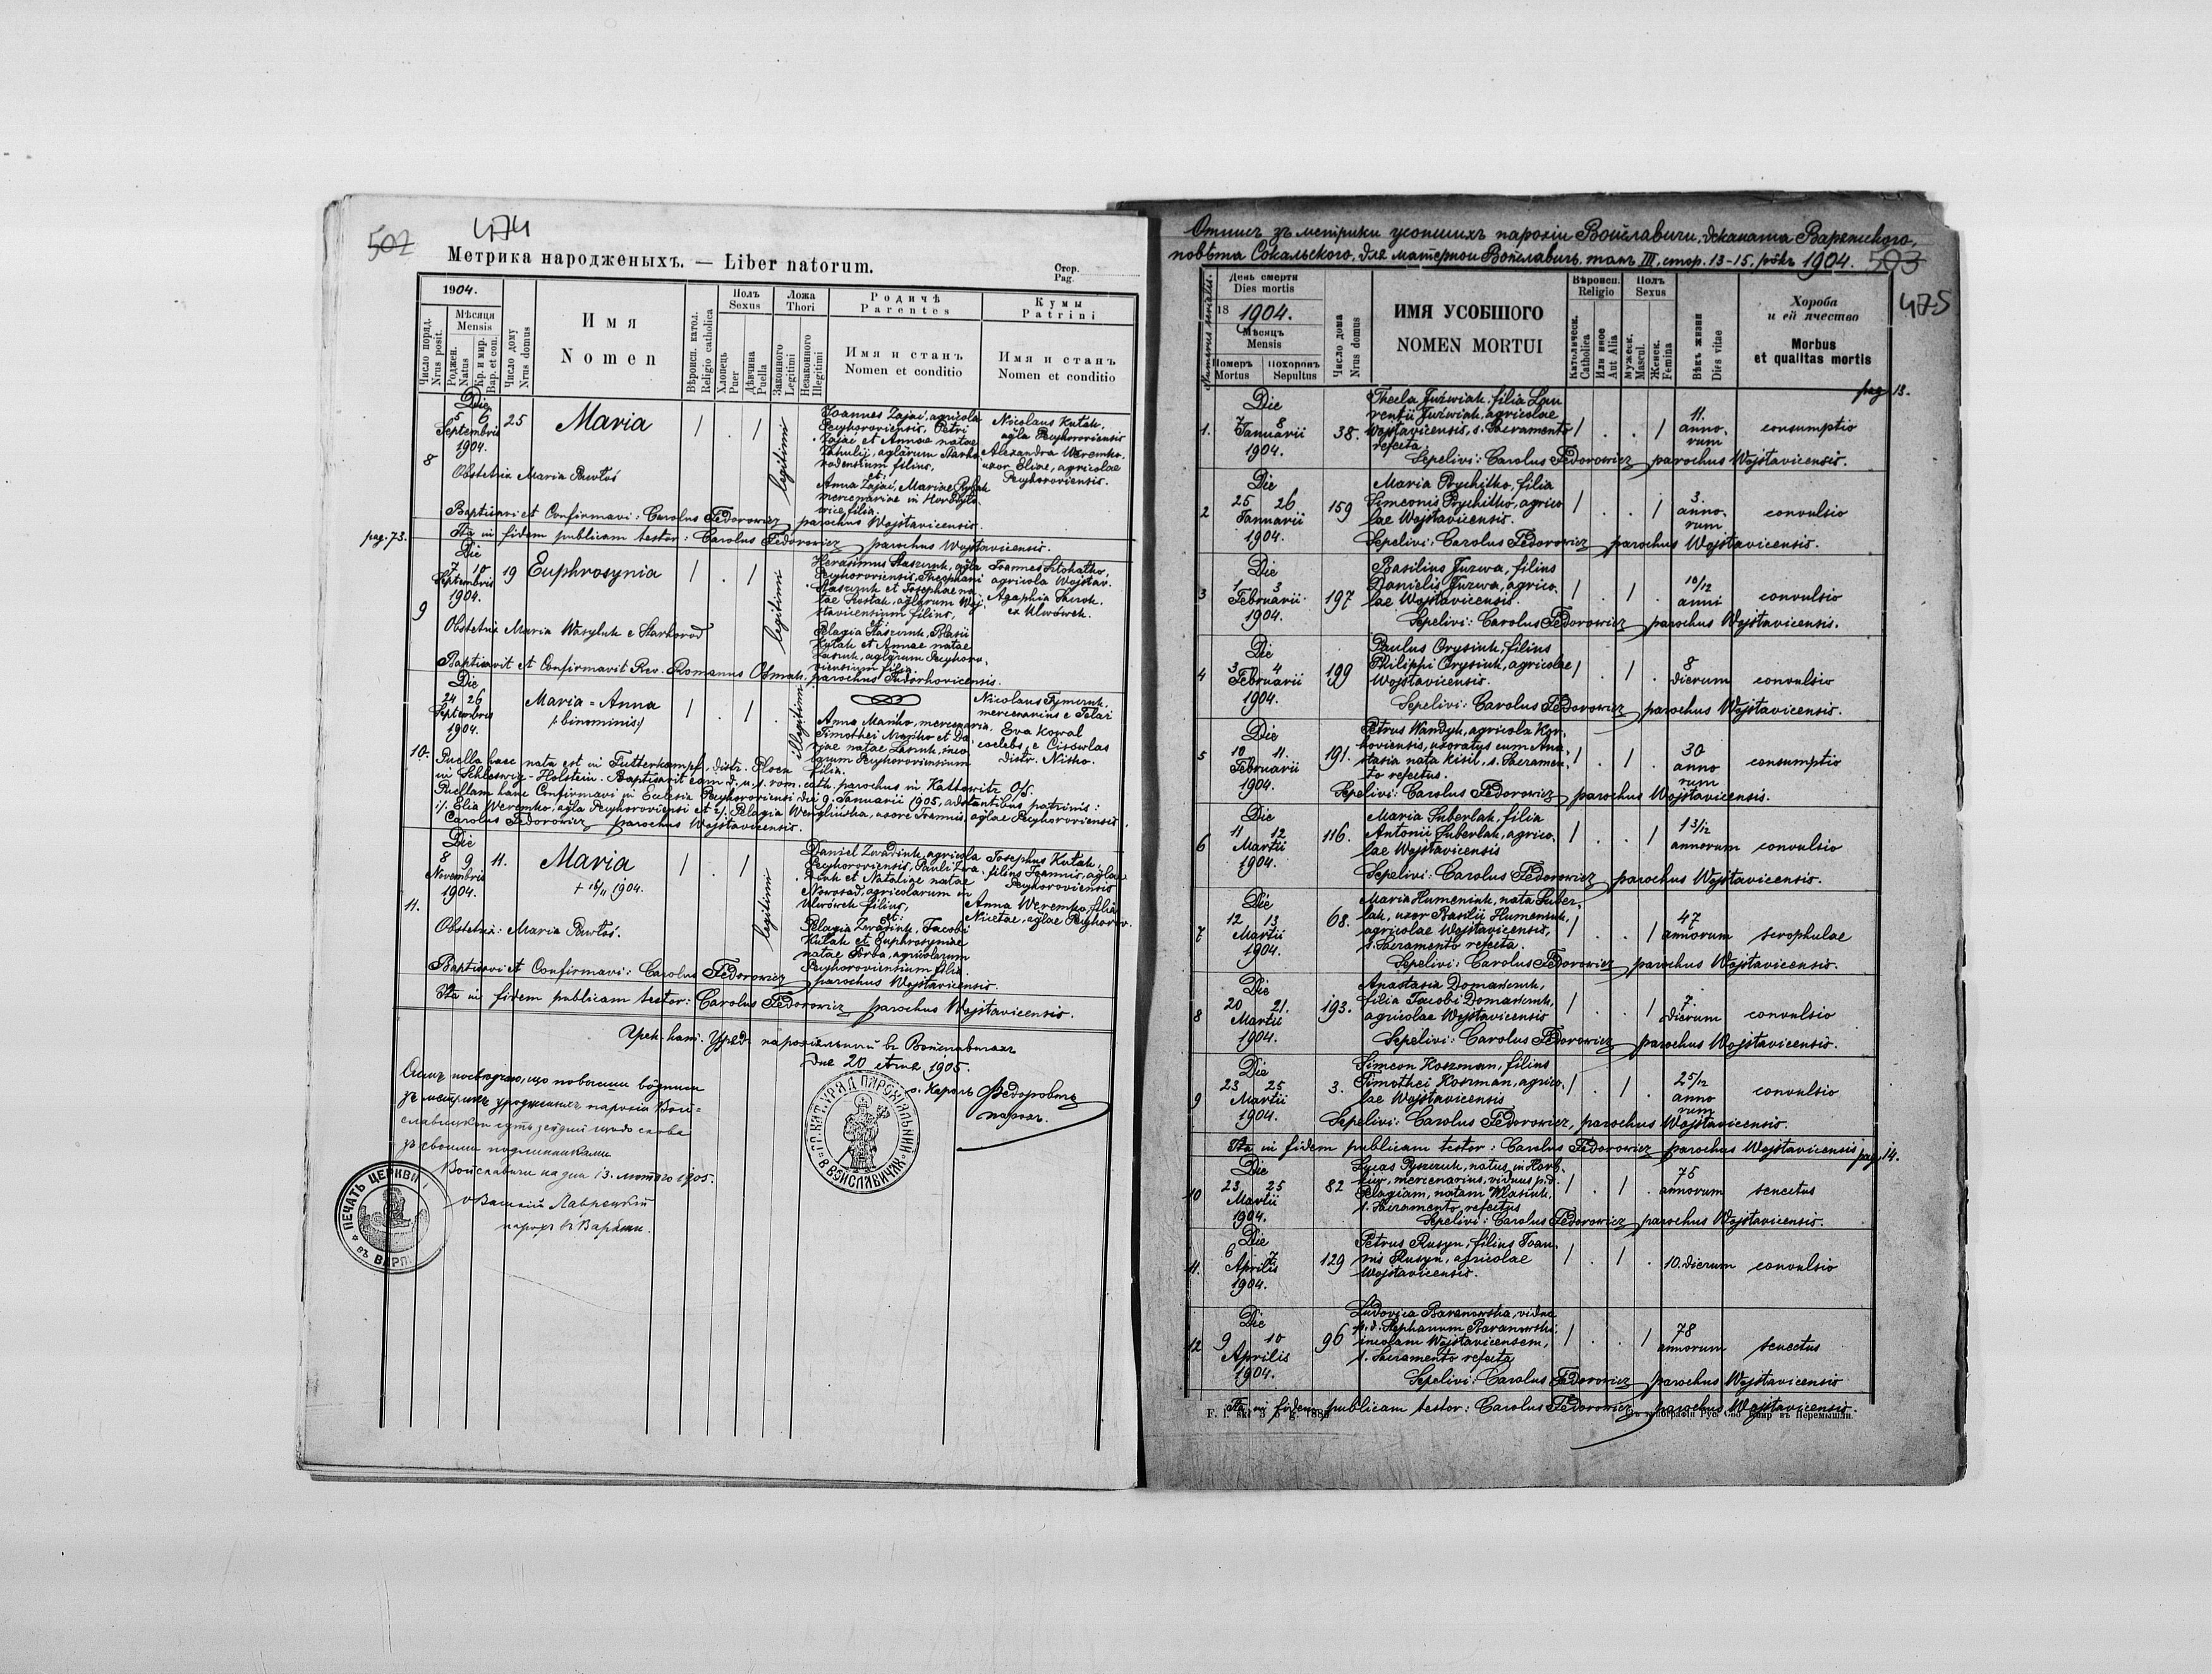 502
474
Метрика народженыхъ. — Liber natorum.
Стор.
Pag.
1904.
Число поряд.
Nrus posit.
Мѣсяця
Mensis
Роджен.
Natus
Кр. и мир.
Bap. et con.
Число дому
Nrus domus
Имя
Nomen
Вѣроисп. катол.
Religio catholica
Полъ
Sexus
Хлопець
Puer
Дѣвчина
Puella
Ложа
Thori
Законного
Legitimi
Незаконного
Illegitimi
Родичѣ
Parentes
Имя и станъ
Nomen et conditio
Кумы
Patrini
Имя и станъ
Nomen et conditio
8
Die
5 6
Septembris
1904.
25
Maria
1 . 1
legitimi
Joannes Zajac, agricola
Pechoroviensis, Petri
Zajac et Annae natae
filius,
et:
Anna Zajac, Mariae
mercenariae in
filia.
Nicolaus Kutak,
agla
Alexandra Weremko,
uxor Eliae, agricolae
Obstetrix Maria Pawłoś
Baptisavi et Confirmavi: Carolus Fedorowicz parochus Wojsławicensis.
pag. 73.
Ita in fidem publicam testor: Carolus Fedorowicz parochus Wojsławicensis.
9
Die
7 10
Septembris
1904.
19
Euphrosynia
1 . 1
legitimi
Herasimus Staszuk, agla
Staszuk et Josephae na
tae
filius,
et:
Pelagia Staszuk, Blasii
Kutak et Annae natae
filia.
Joannes
agricola Wojsław.
Agaphia
ex Ulwówek.
Obstetrix Maria Wasyluk e Starhorod
Baptisavit et Confirmavit Rev. Romanus parochus
10.
Die
24 26
Septembris
1904.
Maria = Anna
(:binominis:)
1 . 1 .
illegitimi
Anna Mańko, mercenaria,
Timothei Mańko et Da
riae natae Lasiuk, inco
larum
filia.
Nicolaus Tymczuk,
mercenarius e
Eva Kowal
coelebs, e
distr. Nisko.
Puella haec nata est in Futterkampf, distr. Ploen
in Schleswig-Holstein. Baptisavit eam d. u. s. rom. cath. parochus in Kattowitz O/S.
Puellam hanc Confirmavi in Ecclesia die 9. Januarii 1905, adstantibus patrinis:
1/. Elia Weremko, agla et 2/. Pelagia uxore Joannis, aglae
Carolus Fedorowicz parochus Wojsławicensis.
11.
Die
8 9
Novembris
1904.
11.
Maria
+ 16/11 1904.
1 . 1
legitimi
Daniel agricola
Pauli
et Nataliae natae
Nowosad, agricolarum in
Ulwówek filius,
et:
Pelagia Jacobi
Kutak et Euphrosyniae
natae Torba, agricolarum
filia.
Josephus Kutak,
filius Joannis, aglae
Anna Weremko, filia
Nicetae, aglae
Obstetrix: Maria Pawłoś.
Baptisavi et Confirmavi: Carolus Fedorowicz parochus Wojsławicensis.
Ita in fidem publicam testor: Carolus Fedorowicz parochus Wojsławicensis.
Грек. кат. Уряд парохіяльный въ Войславичахъ
Дня 20 1905.
о. Кароль Федоровичъ
парох.
Войславичи на дни 13. лютого 1905.
Василій Лаврецкій
парох въ Варяжи.
ПЕЧАТЬ ЦЕРКВИ
въ ВАРЯ
ГР. КАТ. УРЯД ПАРОХІЯЛЬНЫЙ
В ВОЙСЛАВИЧАХ
Отписъ зъ метрики усопшихъ парохіи Войславичи, деканата Варяжского,
повѣта Сокальского, для матерной Войславичъ, томъ III, стор. 13-15, рокъ 1904.
503
475
Numerus serialis.
День смерти
Dies mortis
18 1904.
Мѣсяць
Mensis
Померъ
Mortus
Похоронъ
Sepultus
Число дома
Nrus domus
ИМЯ УСОБШОГО
NOMEN MORTUI
Вѣроисп.
Religio
Католическ.
Catholica
Или иное
Aut Alia
Полъ
Sexus
Мужеск.
Mascul.
Женск.
Femina
Вѣкъ жизни
Dies vitae
Хороба
и ей ячество
Morbus
et qualitas mortis
pag. 13.
1.
Die
7 8
Januarii
1904.
38.
Thecla Juźwiak, filia Lau
rentii Juźwiak, agricolae
Wojsławicensis, s. Sacramento
refecta.
1 . . 1
11.
anno-
rum
consumptio
Sepelivi: Carolus Fedorowicz parochus Wojsławicensis.
2
Die
25 26
Januarii
1904.
159
Maria Prychitko, filia
Simeonis Prychitko, agrico
lae Wojsławicensis.
1 . . 1
3.
anno-
rum
convulsio
Sepelivi: Carolus Fedorowicz parochus Wojsławicensis.
3
Die
1 3
Februarii
1904.
197
Basilius Juzwa, filius
Danielis Juzwa, agrico
lae Wojsławicensis.
1 . 1 .
10/12
anni
convulsio
Sepelivi: Carolus Fedorowicz parochus Wojsławicensis.
4
Die
3 4
Februarii
1904.
199
Paulus Orysiuk, filius
Philippi Orysiuk, agricolae
Wojsławicensis.
1 . 1 .
8
dierum
convulsio
Sepelivi: Carolus Fedorowicz parochus Wojsławicensis.
5
Die
10 11.
Februarii
1904.
191.
Petrus Wandyk, agricola Kor-
koviensis, uxoratus cum Ana-
stasia nata Kisil, s. Sacramen-
to refectus.
1 . 1 .
30
anno
rum
consumptio
Sepelivi: Carolus Fedorowicz parochus Wojsławicensis.
6
Die
11 12
Martii
1904.
116.
Maria Suberlak, filia
Antonii Suberlak, agrico-
lae Wojsławicensis
1 . . 1
1 3/12
annorum
convulsio
Sepelivi: Carolus Fedorowicz parochus Wojsławicensis.
7
Die
12 13
Martii
1904.
68.
Maria Humeniuk, nata Suber-
lak, uxor Basilii Humeniuk,
agricolae Wojsławicensis,
s. Sacramento refecta.
1 . . 1
47
annorum
scrophulae
Sepelivi: Carolus Fedorowicz parochus Wojsławicensis.
8
Die
20 21.
Martii
1904.
193.
Anastasia Domańczuk,
filia Jacobi Domańczuk,
agricolae Wojsławicensis
1 . . 1
7.
dierum
convulsio
Sepelivi: Carolus Fedorowicz parochus Wojsławicensis.
9
Die
23 25
Martii
1904.
3.
Simeon Koszman, filius
Timothei Koszman, agrico-
lae Wojsławicensis
1 . 1 .
2 5/12
anno
rum
convulsio
Sepelivi: Carolus Fedorowicz, parochus Wojsławicensis.
Ita in fidem publicam testor: Carolus Fedorowicz parochus Wojsławicensis
pag. 14.
10
Die
23 25
Martii
1904.
82
Lucas natus in Horb-
ków, mercenarius, viduus p. d.
Pelagiam, natam Wlasiuk,
s. Sacramento refectus
1 . 1 .
75
annorum
senectus
Sepelivi: Carolus Fedorowicz parochus Wojsławicensis.
11.
Die
6 7
Aprilis
1904.
129
Petrus Rusyn, filius Joan-
nis Rusyn, agricolae
Wojsławicensis.
1 . 1 .
10. dierum
convulsio
12
Die
9 10
Aprilis
1904.
96
Ludovica Baranowska, vidua
p. d. Stephanum Baranowski,
incolam Wojsławicensem,
s. Sacramento refecta
1 . . 1
78
annorum
senectus
Sepelivi: Carolus Fedorowicz parochus Wojsławicensis
Ita in fidem publicam testor: Carolus Fedorowicz parochus Wojsławicensis.